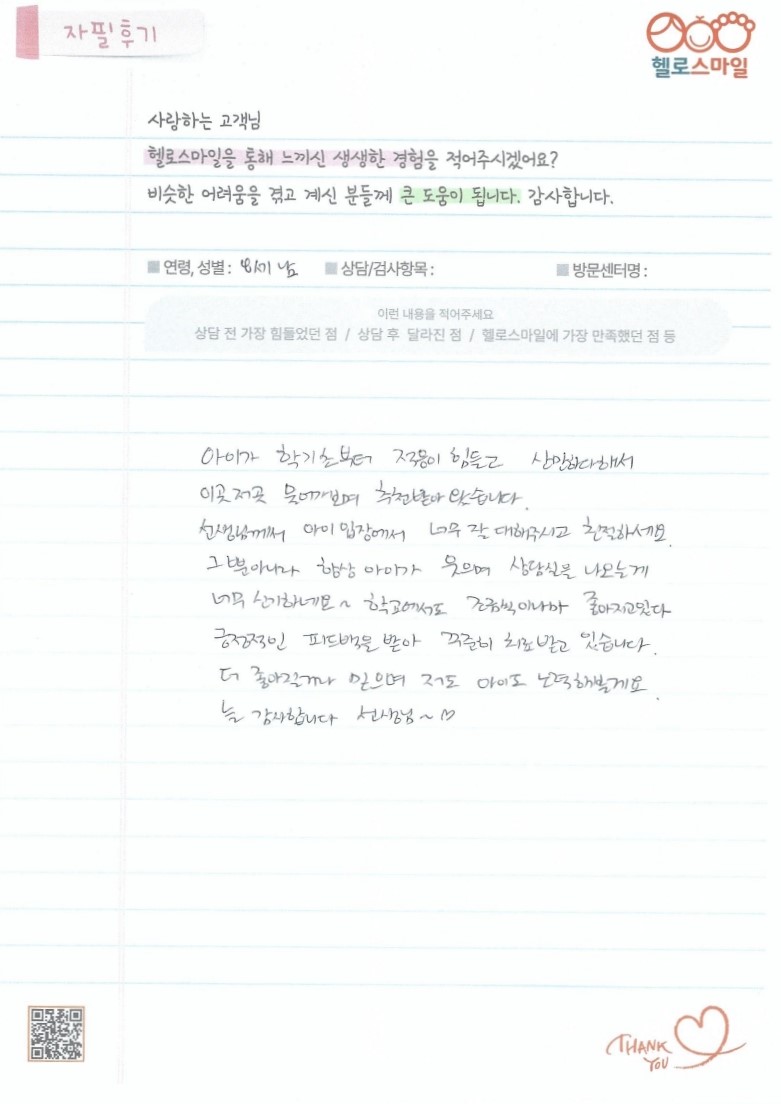 자필후기
헬로스마일
사랑하는 고객님
헬로스마일을 통해 느끼신 생생한 경험을 적어주시겠어요?
비슷한 어려움을 겪고 계신 분들께 큰 도움이 됩니다. 감사합니다.
연령, 성별 : 8세 남 상담/검사항목 : 방문센터명 :
이런 내용을 적어주세요
상담 전 가장 힘들었던 점 / 상담 후 달라진 점 / 헬로스마일에 가장 만족했던 점 등
아이가 학기초부터 적응이 힘들고 산만하다해서
이곳저곳 물어가보며 추천받아 왔습니다.
선생님께서 아이 입장에서 너무 잘 대해주시고 친절하세요.
그뿐아니라 항상 아이가 웃으며 상담실을 나오는게
너무 신기하네요~ 학교에서도 조금씩이나마 좋아지고있다
긍정적인 피드백을 받아 꾸준히 치료받고 있습니다.
더 좋아질거라 믿으며 저도 아이도 노력해볼게요.
늘 감사합니다 선생님~♡
THANK
YOU